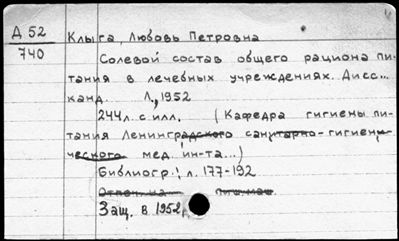 Д 52
740
Клыга, Любовь Петровна
Солевой состав общего рациона пи-
тания в лечебных учреждениях. Дисс...
канд. Л., 1952
244 л. с илл. (Кафедра гигиены пи-
тания Ленинградского санитарно-гигиени-
ческого мед. ин-та...)
Библиогр.: л. 177-192
Отпеч. на пиш. маш.
Защ. в 1952 г.